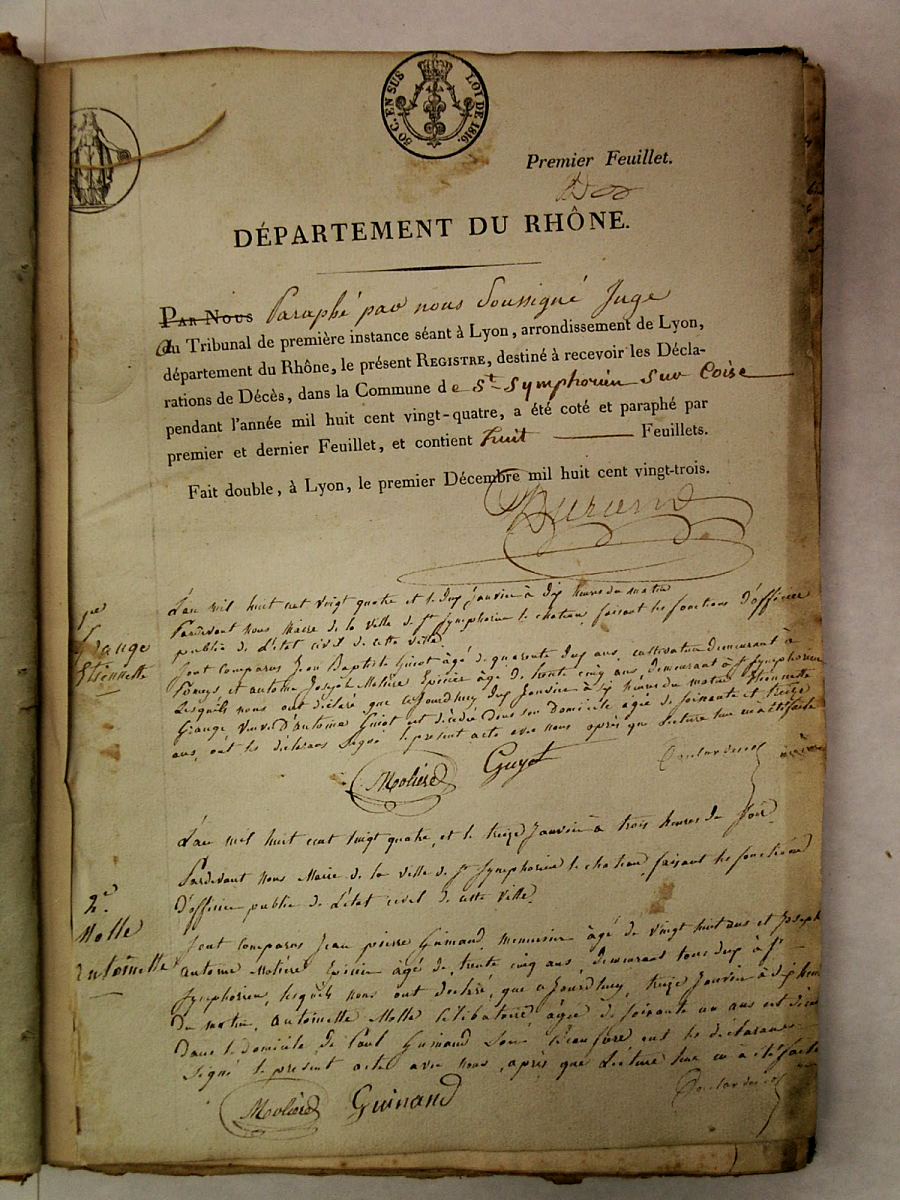 50 C. EN SUS
LOI DE 1816.
Premier Feuillet.
DÉPARTEMENT DU RHÔNE.
Par Nous Paraphé par nous Soussigné Juge
du Tribunal de première instance séant à Lyon, arrondissement de Lyon,
département du Rhône, le présent Registre, destiné à recevoir les Décla-
rations de Décès, dans la Commune de St. Symphorien sur Coise
pendant l'année mil huit cent vingt-quatre, a été coté et paraphé par
premier et dernier Feuillet, et contient huit Feuillets.
Fait double, à Lyon, le premier Décembre mil huit cent vingt-trois.
Durand
1re
Grange
Etiennette
L'an mil huit cent vingt quatre et le dix janvier à dix heures du matin
Pardevant nous Maire de la ville de St Symphorien le chateau, faisant les fonctions d'officier
public de l'état civil de cette ville
Sont comparus Jean Baptiste Guiot âgé de quarante dix ans, cultivateur demeurant à
Pomeys et antoine Joseph Molière Epicier âgé de trente cinq ans, demeurant à St Symphorien
Lesquels nous ont déclaré que aujourdhuy dix Janvier à six heures du matin Etiennette
Grange Veuve D'antoine Guiot est décédée Dans son Domicile agée de soixante et treize
ans, ont les déclarans Signé le present acte avec nous après que Lecture leur en a été faite
Molière Guyot
2e.
Molle
antoinette
L'an mil huit cent vingt quatre, et le treize Janvier à trois heures du soir
Pardevant nous Maire de la ville de St Symphorien le chateau, faisant les fonctions
d'officier public de L'état civil de cette ville
Sont comparus Jean pierre Guinand, menuisier âgé de vingt huit ans et Joseph
antoine Molière Epicier âgé de trente cinq ans, Demeurant tous deux à St
Symphorien, lesquels nous ont déclaré, que aJourdhuy, treize Janvier à six heures
du matin, antoinette Molle Célibataire âgée de soixante un ans est
Dans le domicile de Paul Guinand Son Beaufrère, ont les déclarans
Signé le present acte avec nous, après que Lecture leur en a été faite
Molière Guinand